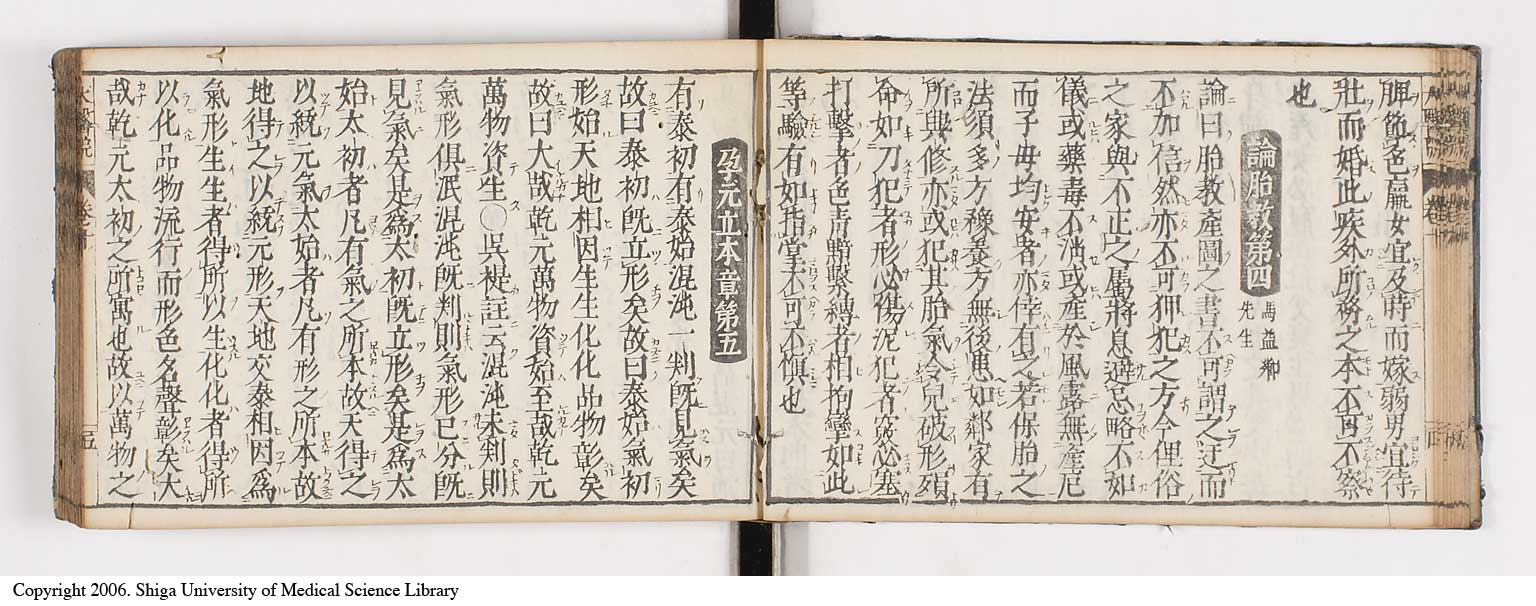 脾節色羸女宜及時而嫁弱男宜待
壯而婚此疾外所務之本不可不察
也
論胎教第四
馮益卿
先生
論曰胎教產圖之書不可謂之迂而
不加信然亦不可狎犯之方今俚俗
之家與不正之屬將息避忌略不如
儀或藥毒不消或產於風露無產厄
而子母均安者亦倖有之若保胎之
法須多方豫養方無後患如鄰家有
所興修亦或犯其胎氣令兒破形殞
命如刀犯者形必傷泥犯者竅必塞
打擊者色青黯繫縛者相拘攣如此
等驗有如指掌不可不慎也
孕元立本章第五
有泰初有泰始混沌一判既見氣矣
故曰泰初既立形矣故曰泰始氣初
形始天地相因生生化化品物彰矣
故曰大哉乾元萬物資始至哉乾元
萬物資生〇吳禔註云混沌未判則
氣形俱泯混沌既判則氣形已分既
見氣矣是為太初既立形矣是為太
始太初者凡有氣之所本故天得之
以統元氣太始者凡有形之所本故
地得之以統元形天地交泰相因為
氣形生生者得所以生化化者得所
以化品物流行而形色名聲彰矣大
哉乾元太初之所寓也故以萬物之
Copyright 2006. Shiga University of Medical Science Library